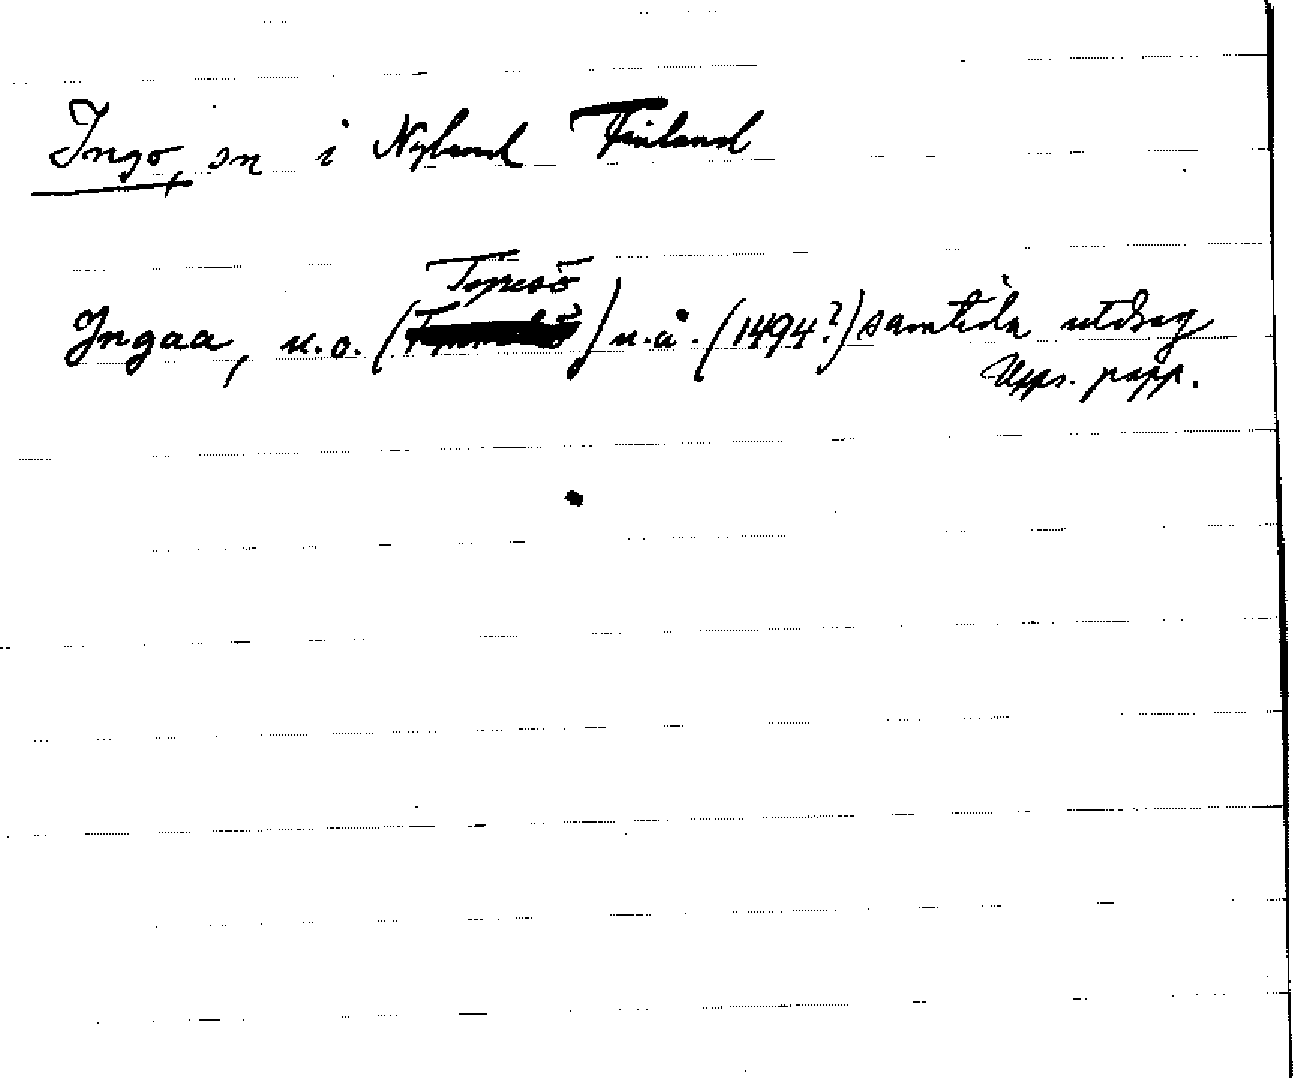 Ingo, sn i Nyland Finland
Tyresö
Ingaa, u.o. ( ) u.å. (1494?) samtida utdrag
Upps. papp.